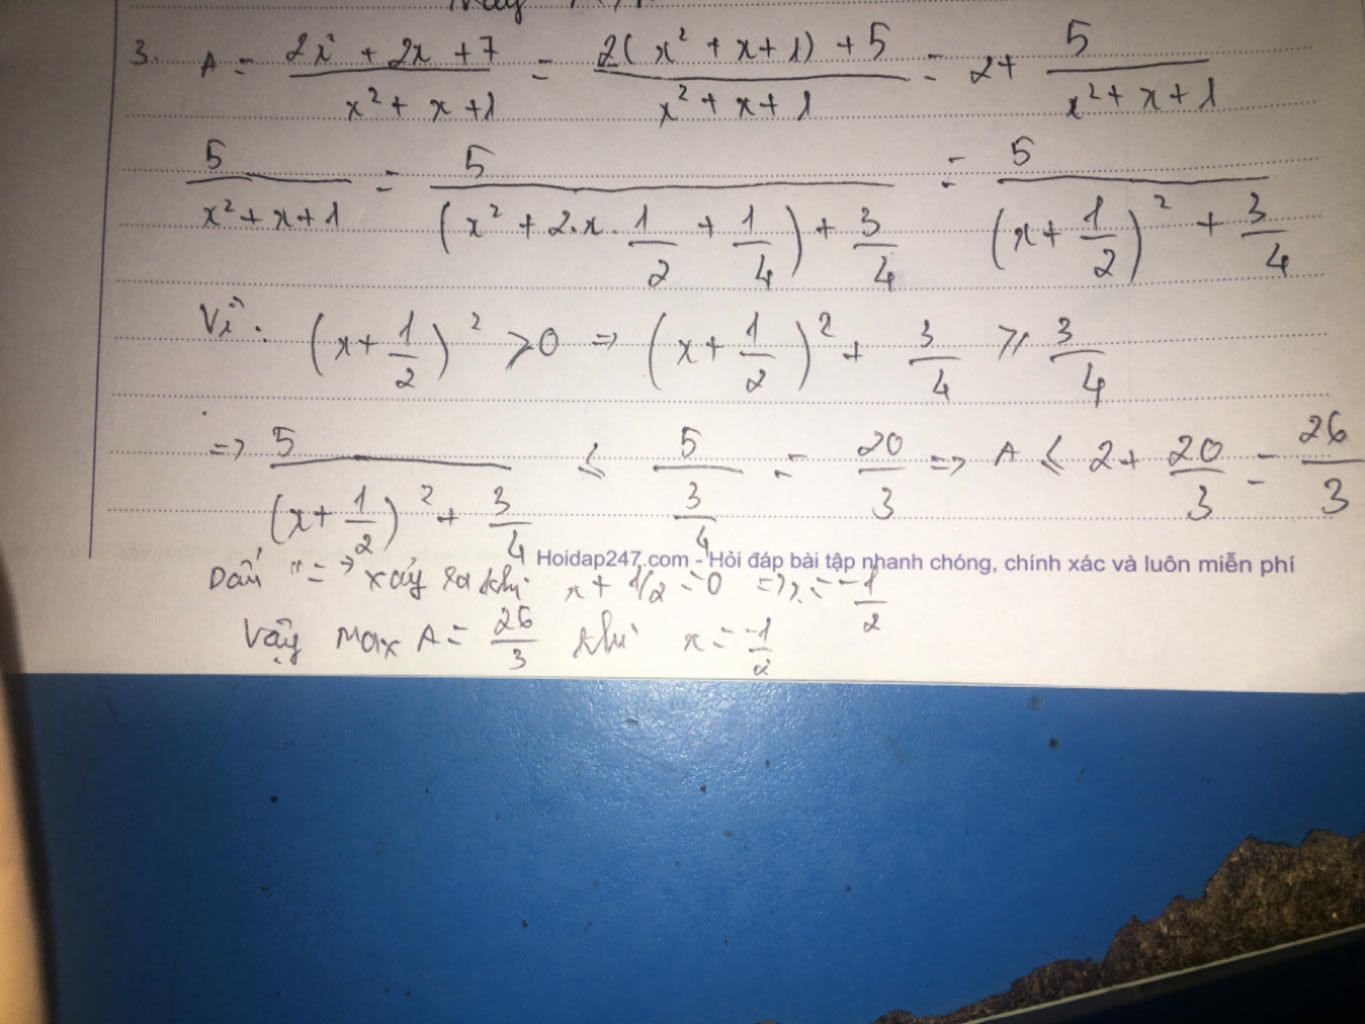 3. A = \frac{2x^2 + 2x + 7}{x^2 + x + 1} = \frac{2(x^2 + x + 1) + 5}{x^2 + x + 1} = 2 + \frac{5}{x^2 + x + 1}
\frac{5}{x^2 + x + 1} = \frac{5}{(x^2 + 2.x.\frac{1}{2} + \frac{1}{4}) + \frac{3}{4}} = \frac{5}{(x + \frac{1}{2})^2 + \frac{3}{4}}
Vì: (x + \frac{1}{2})^2 ≥ 0 => (x + \frac{1}{2})^2 + \frac{3}{4} ≥ \frac{3}{4}
=> \frac{5}{(x + \frac{1}{2})^2 + \frac{3}{4}} ≤ \frac{5}{\frac{3}{4}} = \frac{20}{3} => A ≤ 2 + \frac{20}{3} = \frac{26}{3}
Hoidap247.com - Hỏi đáp bài tập nhanh chóng, chính xác và luôn miễn phí
Dấu "=" xảy ra khi x + 1/2 = 0 => x = -\frac{1}{2}
Vậy Max A = \frac{26}{3} khi x = \frac{-1}{2}